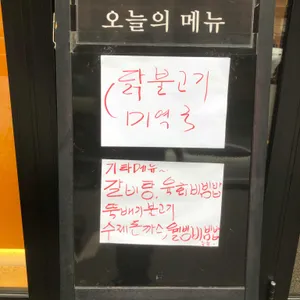 오늘의 메뉴
(닭불고기
미역국
기타메뉴~
갈비통, 육회비빔밥
뚝배기불고기
수제돈까스, 꼬막비빔밥